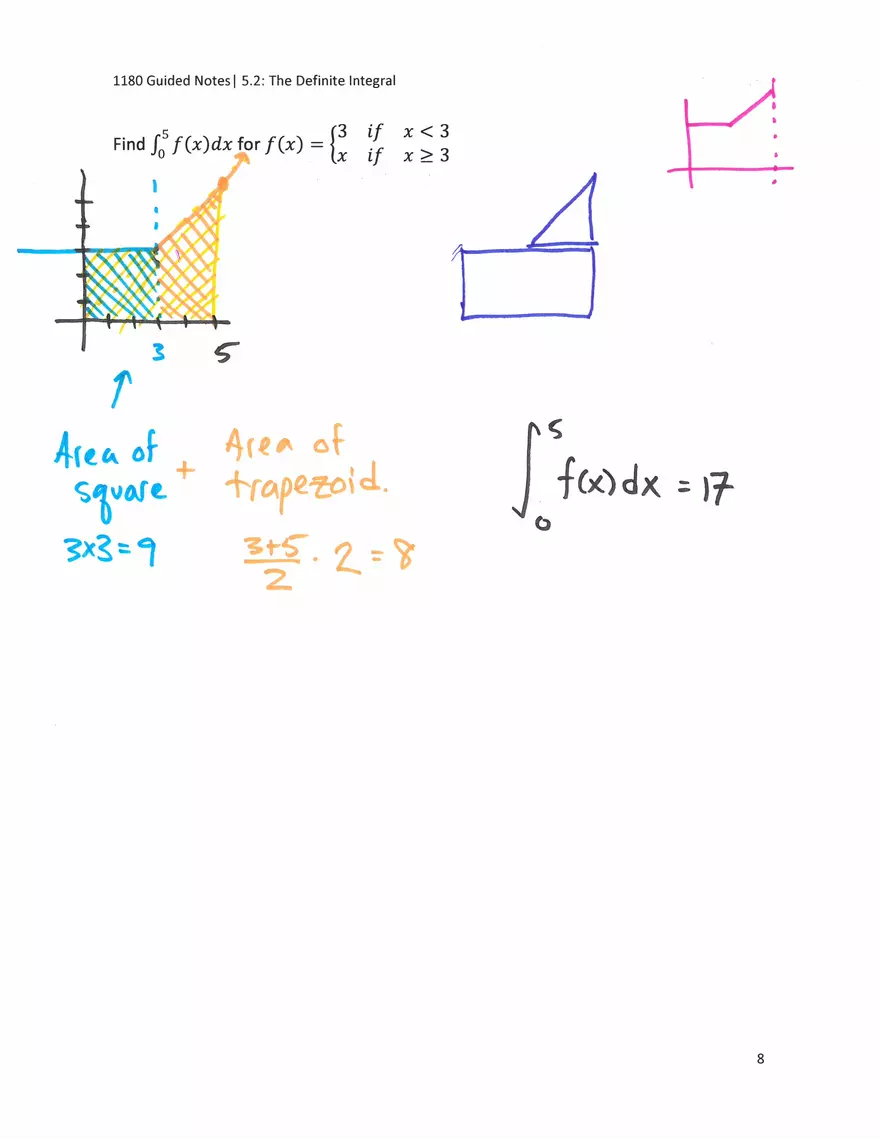 1180 Guided Notes| 5.2: The Definite Integral
Find ∫₀⁵ f(x)dx for f(x) = {3 if x < 3
{x if x ≥ 3
3
5
Area of square + Area of trapezoid.
3x3=9
(3+5)/2 · 2 = 8
∫₀⁵ f(x) dx = 17
8